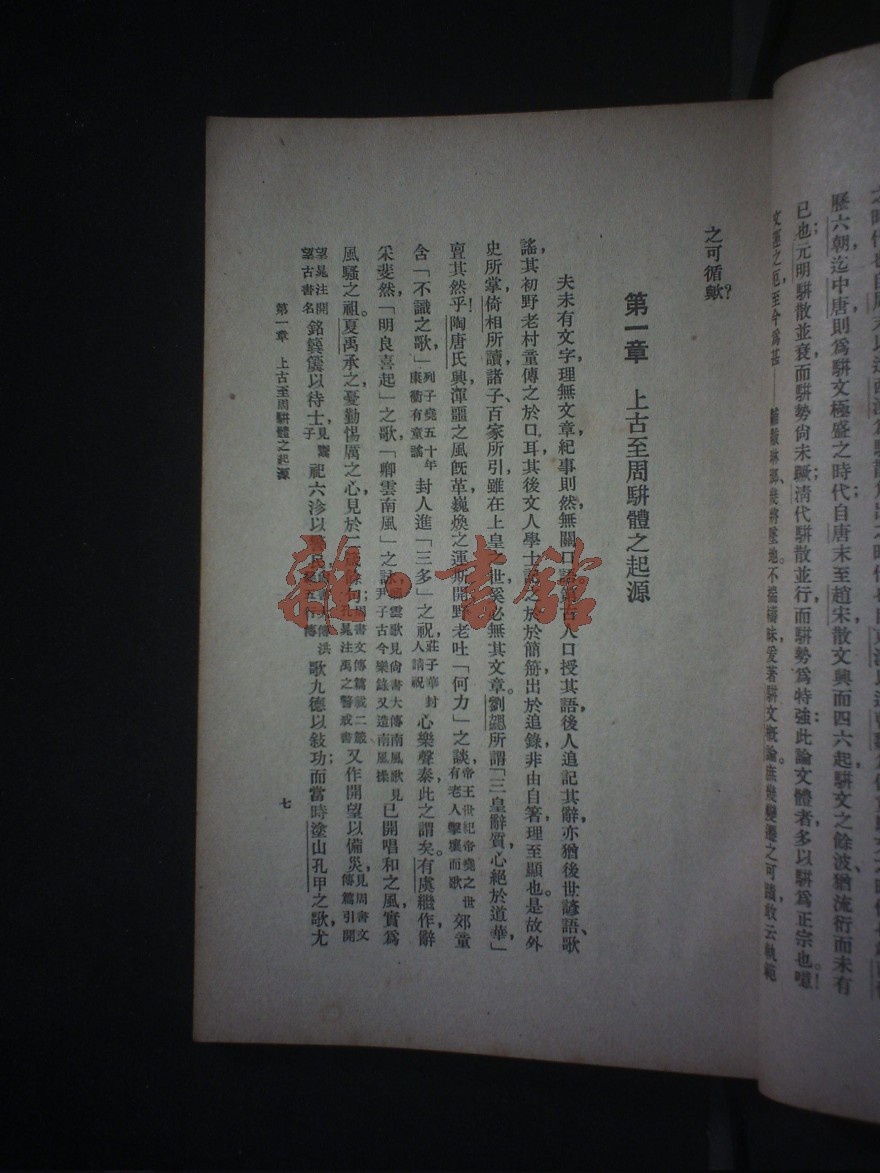 歷六朝迄中唐則爲駢文極盛之時代自唐末至趙宋散文興而四六起駢文之餘波猶流衍而未有
已也；元明駢散並衰而駢勢尙未蹶；清代駢散並行而駢勢爲特強；此論文體者多以駢爲正宗也。噫！
文運之厄至今爲甚
之可循歟？
第一章　上古至周駢體之起源
夫未有文字，理無文章，紀事則然，無關口語。古人口授其語，後人追記其辭，亦猶後世諺語、歌
謠，其初野老村童傳之於口耳，其後文人學士記之於簡，出於追錄，非由自箸，理至顯也。是故外
史所掌，倚相所讀，諸子、百家所引，雖在上皇之世，奚必無其文章。劉勰所謂「三皇辭質，心絕於道華」，
亶其然乎！陶唐氏興，渾噩之風旣革，巍煥之運斯開，野老吐「何力」之談，帝王世紀帝堯之世有老人擊壤而歌郊童
含「不識之歌」，列子堯五十年康衢有童謠封人進「三多」之祝，莊子華封人請祝心樂聲泰，此之謂矣。有虞繼作，辭
采斐然，「明良喜起」之歌，「卿雲南風」之詠，雲歌見尙書大傳南風歌見尹子古今樂錄又造南風操已開唱和之風，實爲
風騷之祖。夏禹承之，憂勤惕厲之心，見於二箴；周書文傳篇載二箴孔晁注禹之警戒書又作開望以備災，見周書文傳篇引開
望晁注開望古書名銘簨簴以待士，見鬻子祀六沴以民，傳洪五行傳歌九德以敍功；而當時塗山、孔甲之歌，尤
第一章　上古至周駢體之起源
七
雜·書館